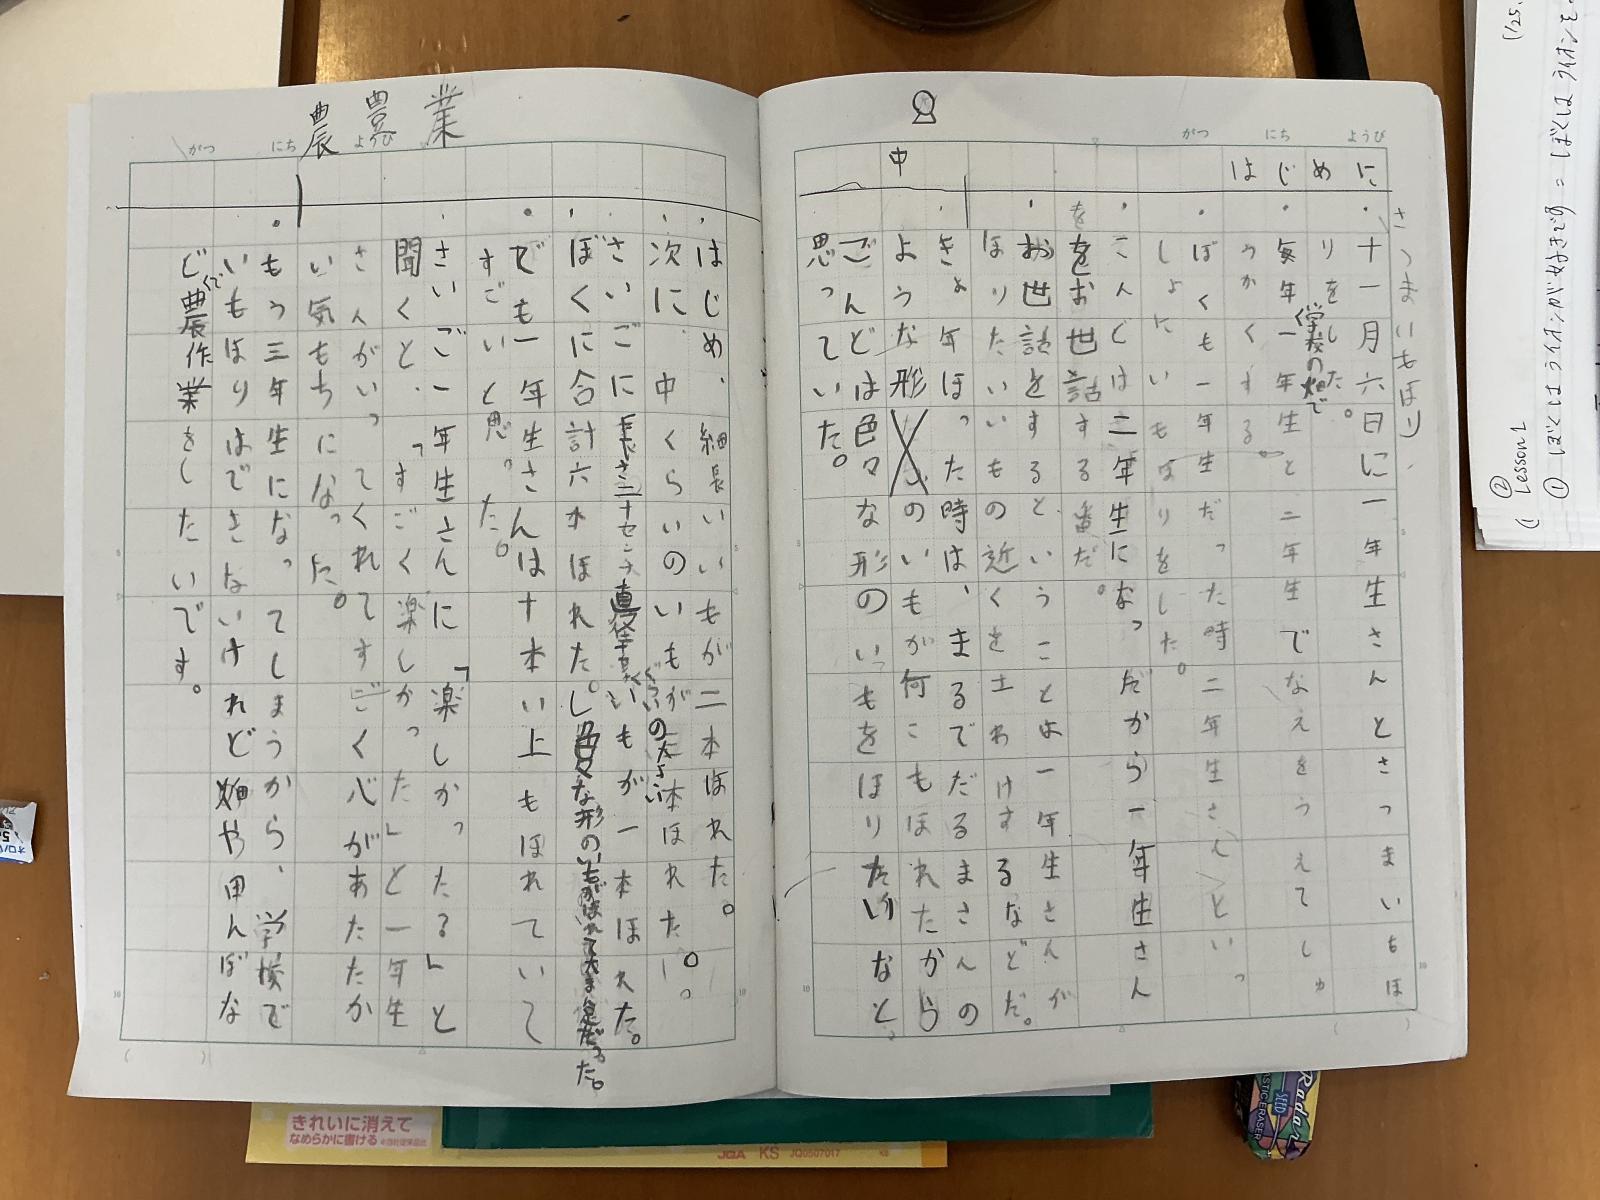 さつまいもほり
はじめに
・十一月六日に一年生さんとさつまいもほ
りをした。
学校の畑で
・毎年一年生と二年生でなえをうえてしゅ
うかくする。
・ぼくも一年生だった時二年生さんといっ
しょにいもほりをした。
・こんどは二年生になっだから一年生さん
ををお世話する番だ。
・お世話をするということは一年生さんが
ほりたいいもの近くを土わけするなどだ。
中
・きょ年ほった時は、まるでだるまさんの
ような形のいもが何こもほれたから
こんどは色々な形のいもをほりたいなと
思っていた。
農農業
・はじめ、細長いいもが二本ほれた。
・次に、中くらいのいもが二本ほれた。
・さいごに長さ二十センチ直径
くらいの大きい
いもが一本ほれた。
・ぼくに合計六本ほれた。し色々な形のいもがほれて大まん足だった。
・でも一年生さんは十本い上もほれていて
すごいと思った。
・さいご一年生さんに「楽しかったる」と
聞くと、「すごく楽しかった」と一年生
さんがいってくれてすごく心があたたか
い気もちになった。
・もう三年生になってしまうから、学校で
いもほりはできないけれど畑や田んぼな
どで農作業をしたいです。
がつ にち ようび
がつ にち ようび
② Lesson 1
① ぼくはライオンが好きです = ぼくはライオンを
きれいに消えて
なめらかに書ける
JQA KS JQ0507017
Radar
PLASTIC ERASER
SEED